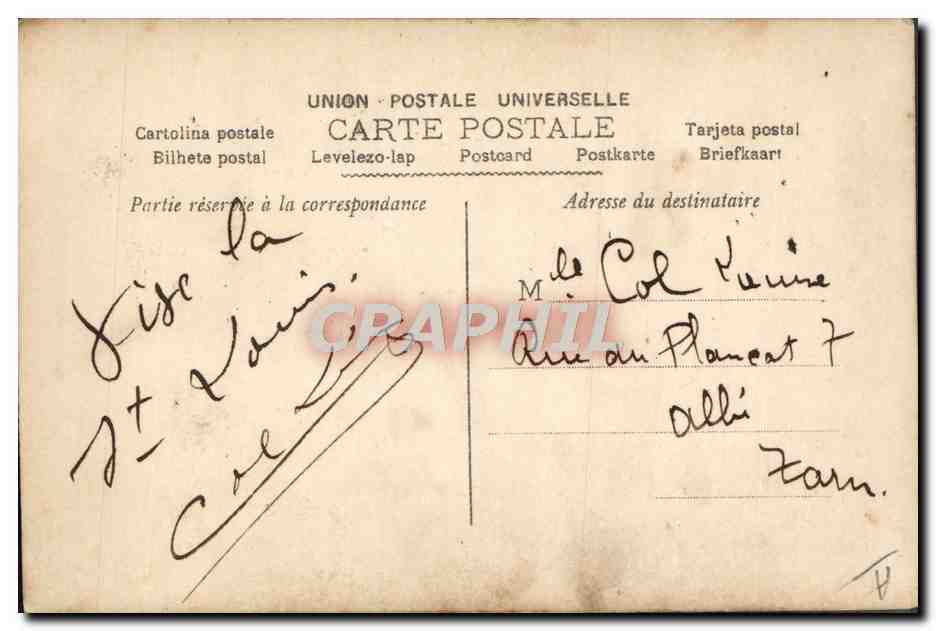 UNION POSTALE UNIVERSELLE
CARTE POSTALE
Cartolina postale
Tarjeta postal
Bilhete postal
Levelezo-lap
Postcard
Postkarte
Briefkaart
Partie réservée à la correspondance
Adresse du destinataire
Vive la
St Louis.
Col
Mlle Col Louise
Rue du Plancat 7
Albi
Tarn.
CRAPHIL